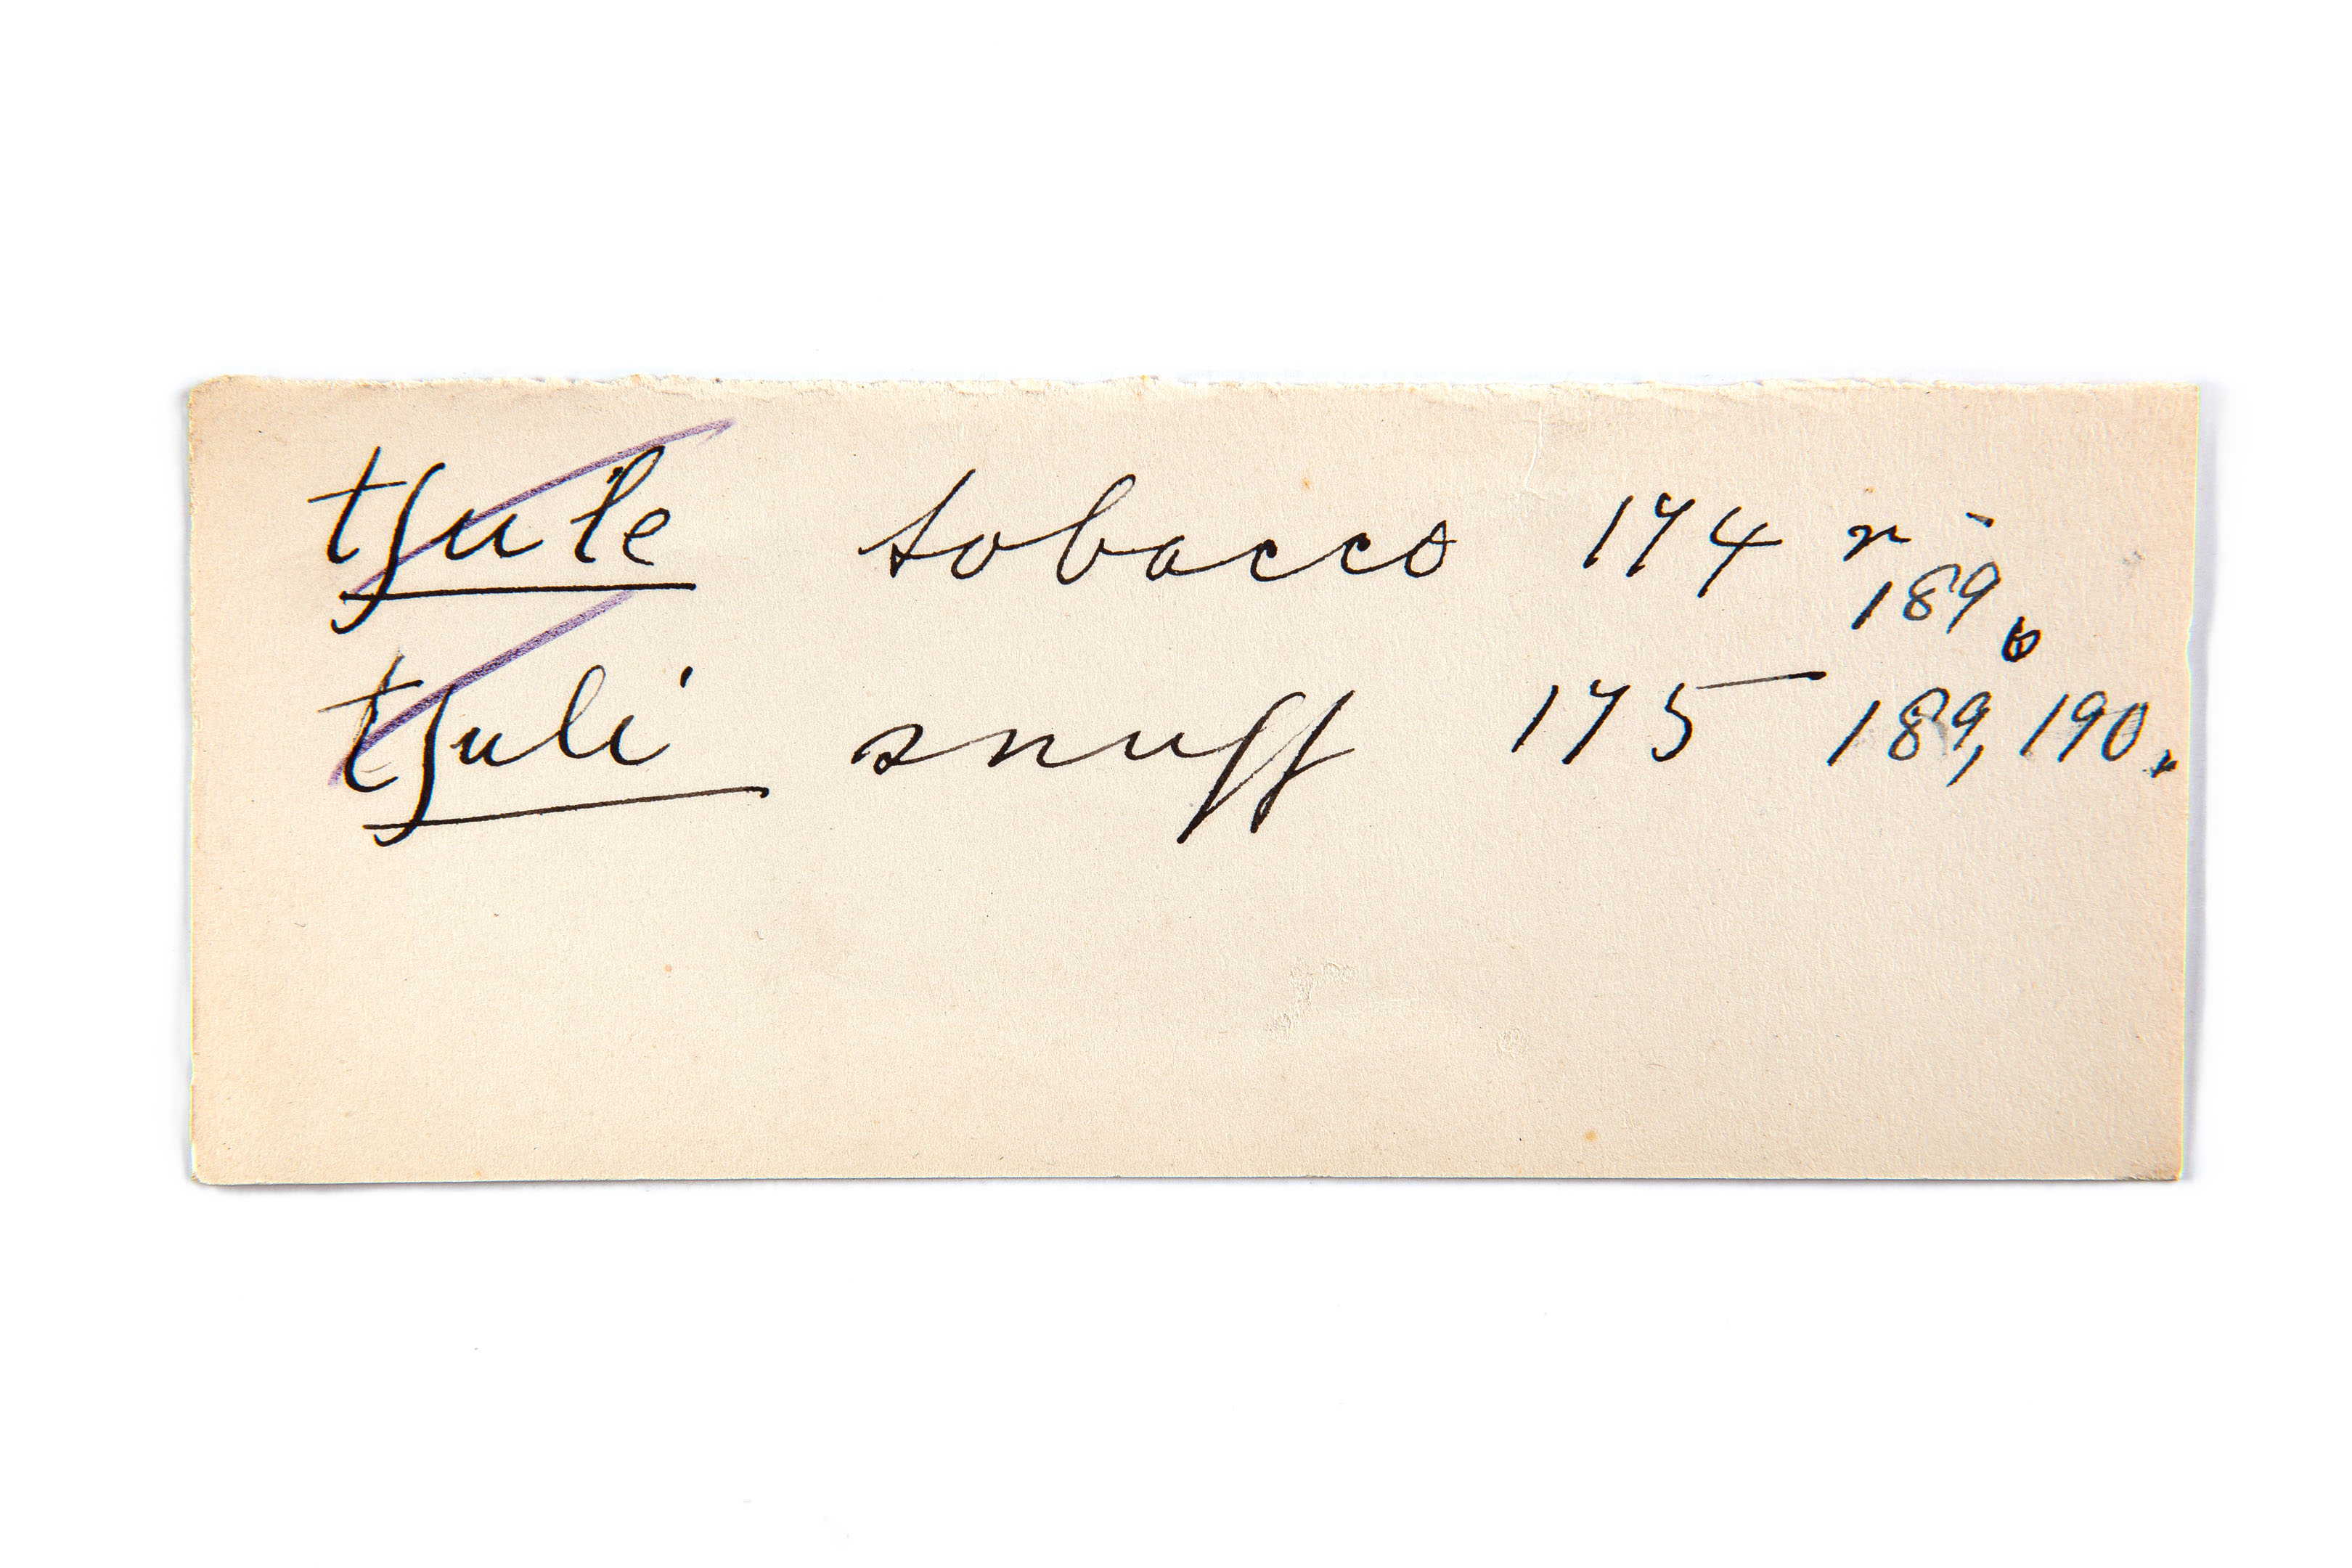 tʃu'le tobacco 174 n -
189.
tʃuli' snuff 175 189, 190.